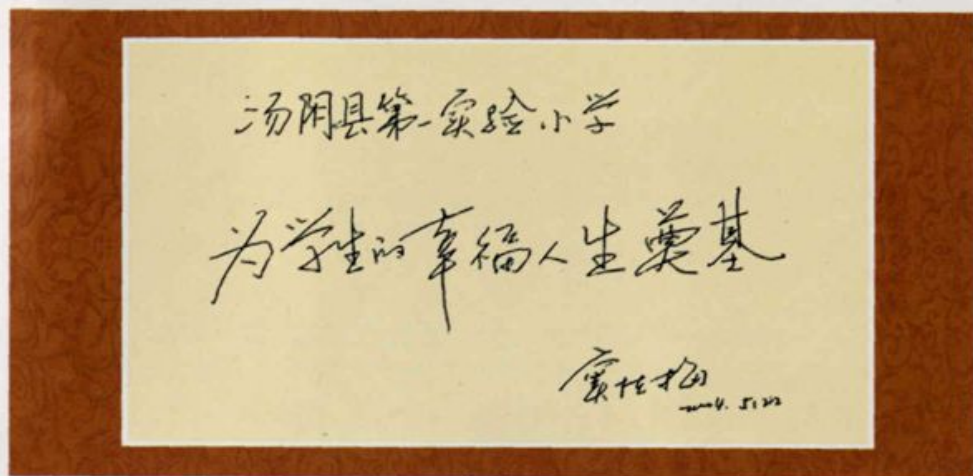 汤阴县第一实验小学
为学生的幸福人生奠基
窦桂梅
2004.5.22